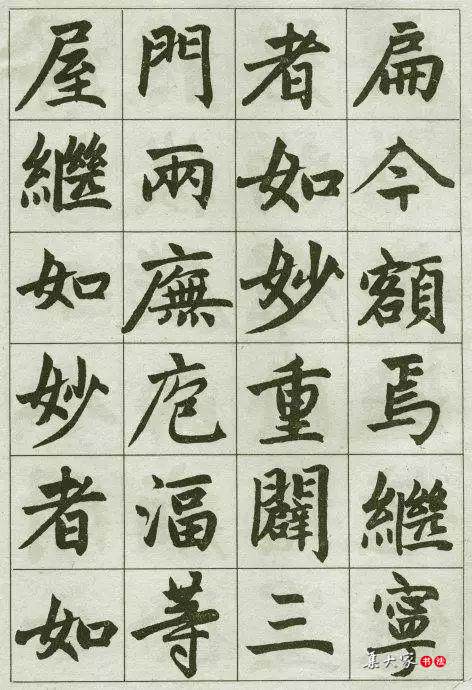 扁今額焉繼寧
者如妙重闢三
門兩廡庖湢等
屋繼如妙者如
集大家书法